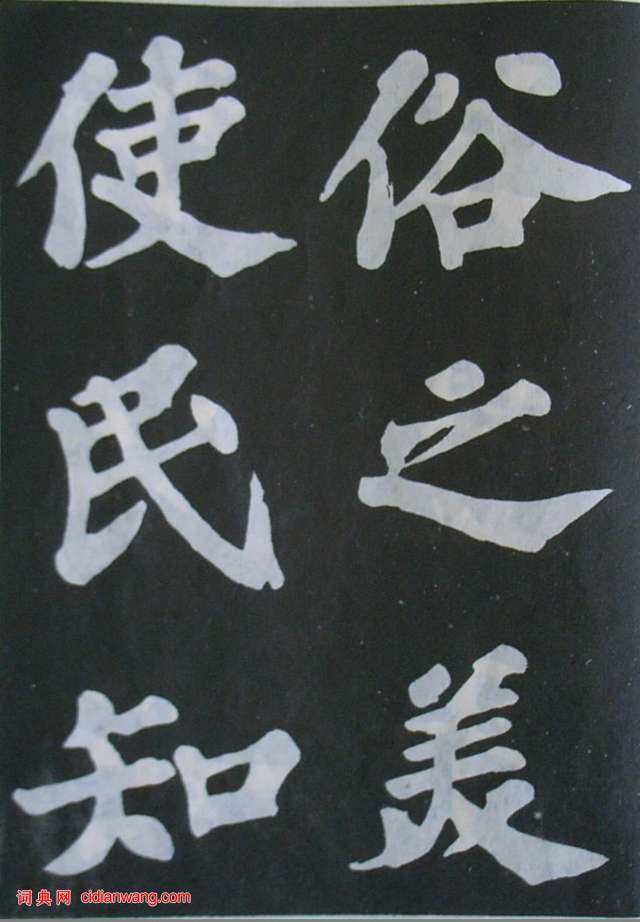 俗之美
使民知
词典网 cidianwang.com